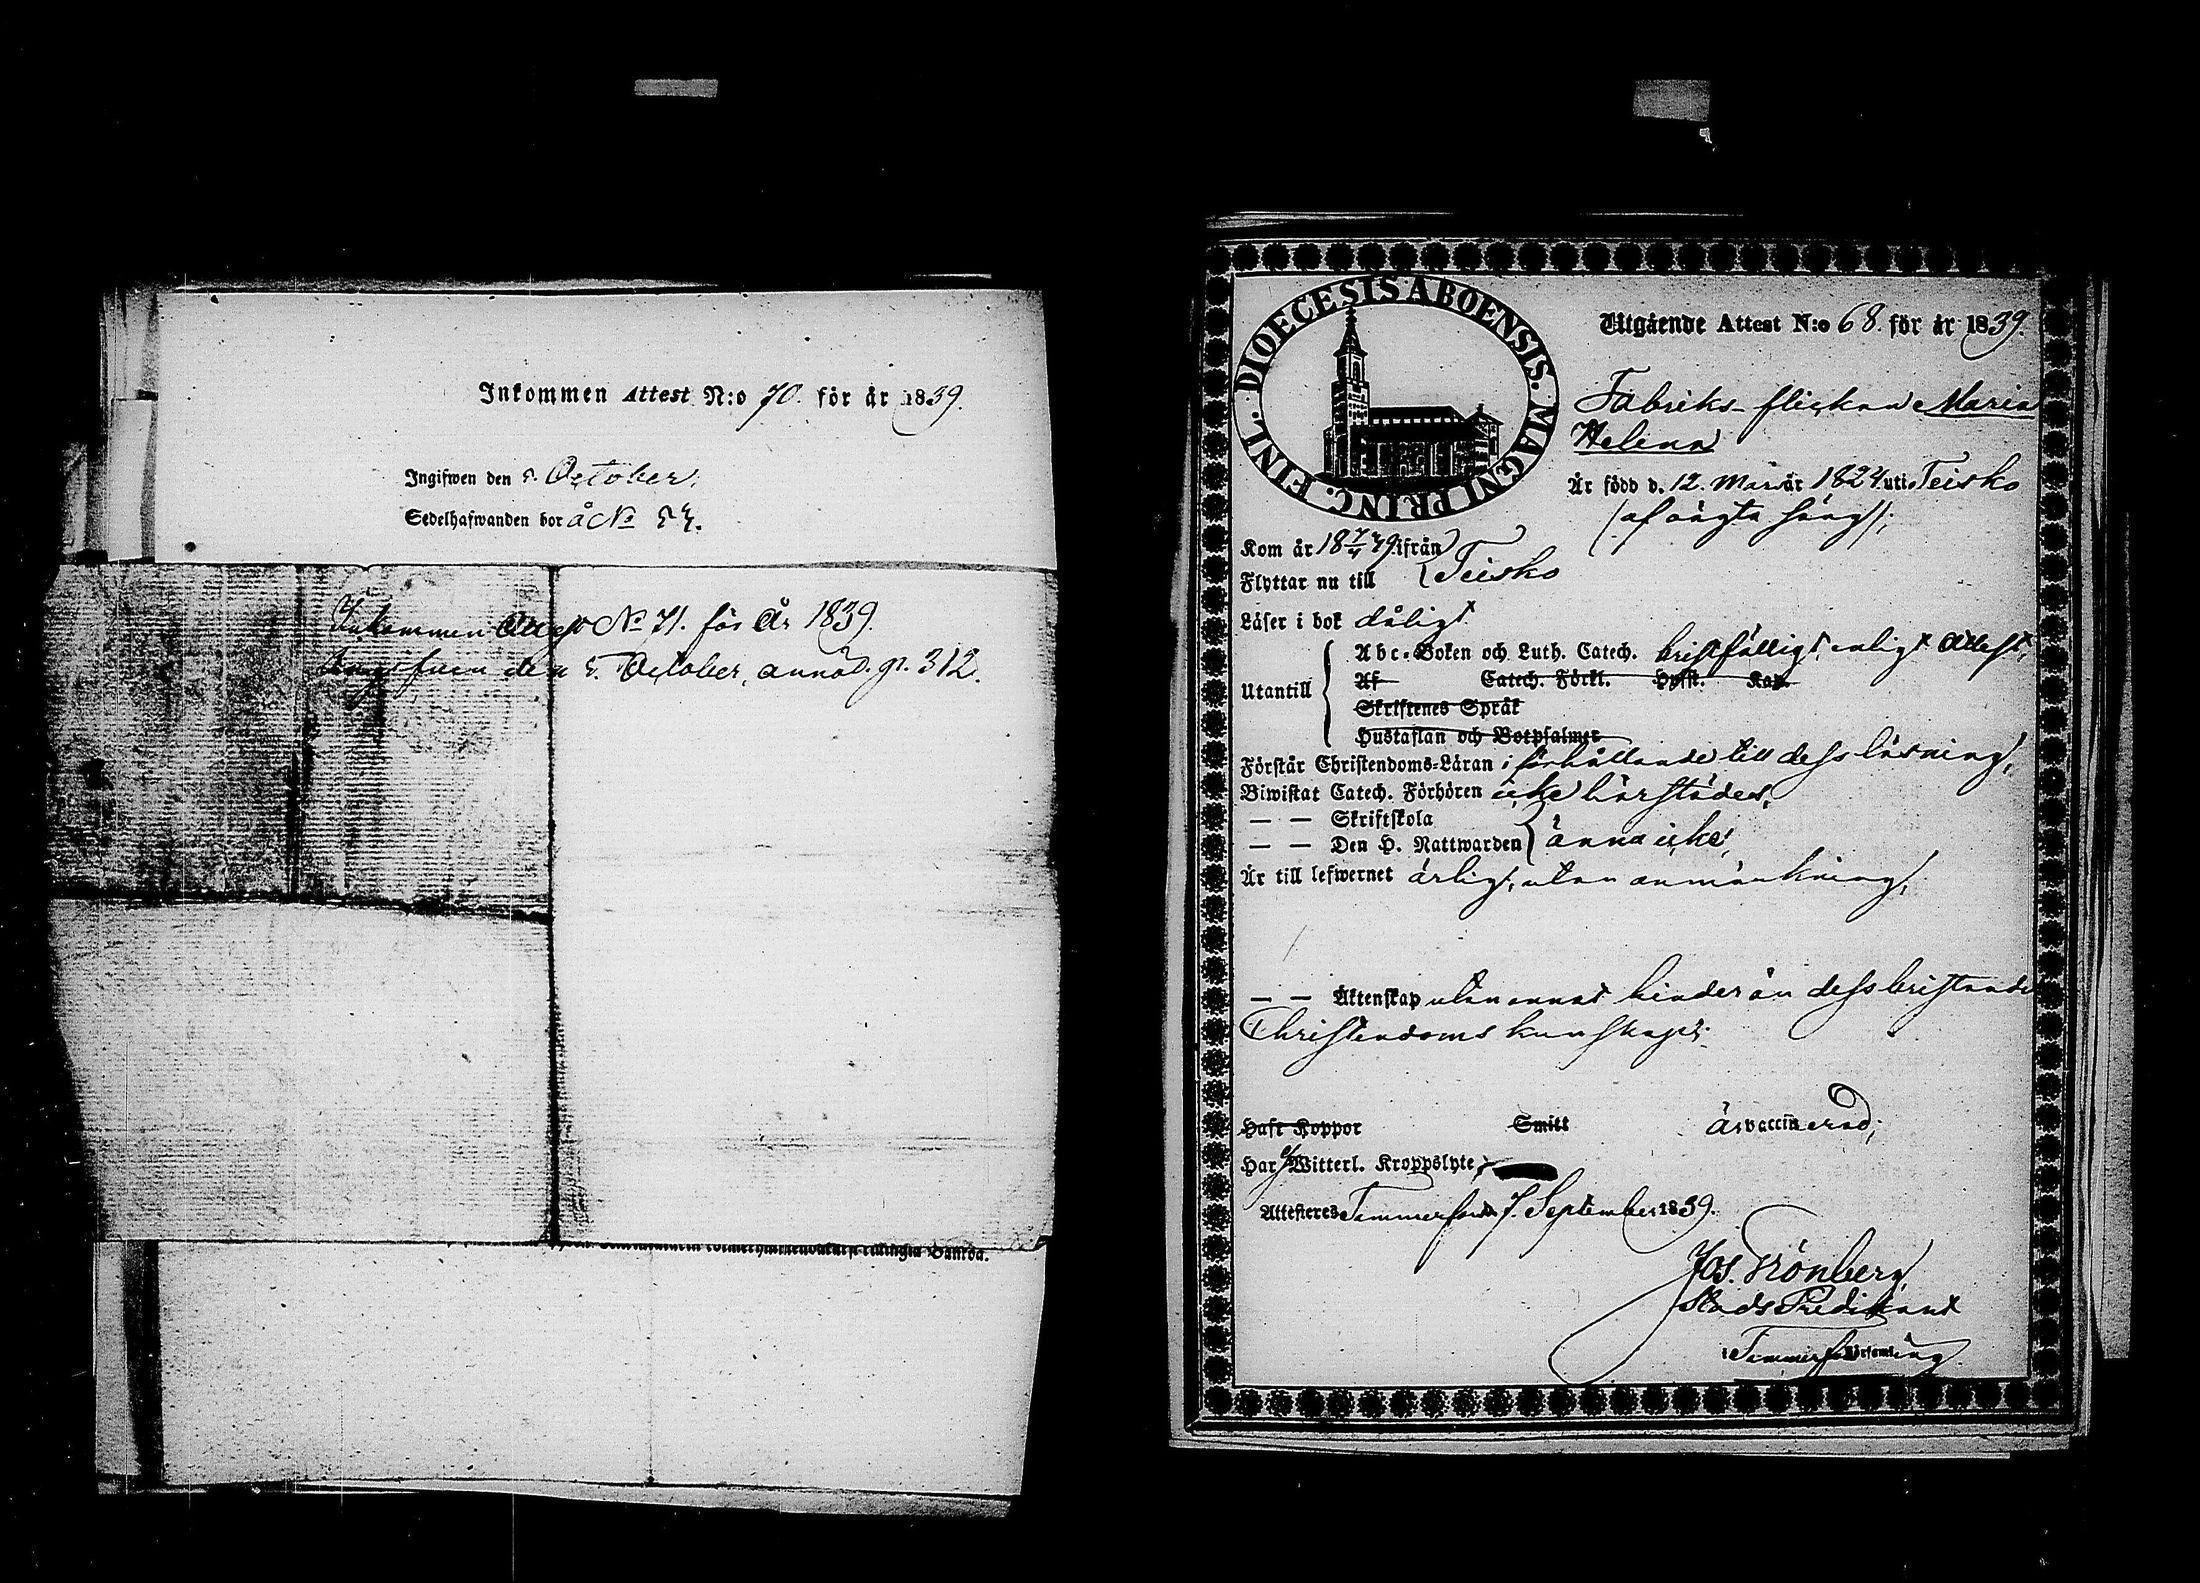 Inkommen Attest N:o 70. för år 1839.
Ingifwen den 5. October.
Sedelhafwanden bor å No 55.
Inkommen Attest No 71. för År 1839.
Ingifven den 5. October, annot. p. 312.
FINL. DIOECESIS ABOENSIS. MAGNI PRINC.
Utgående Attest N:o 68. för år 1839.
Fabriks-flickan Maria
Helena
Är född d. 12. Mars år 1824 uti Teisko
(af oägta säng);
Kom år 18 39 ifrån
Flyttar nu till } Teisko
Läser i bok dåligt
Utantill { Abc-Boken och Luth. Catech. bristfälligt, enligt Attest,
Af Catech. Förkl. Hufst. Kap.
Skriftenes Språk
Hustaflan och Botpsalmer
Förstår Christendoms-Läran i förhållande till dess läsning,
Biwistat Catech. Förhören icke härstädes,
— — Skriftskola
— — Den H. Nattwarden } ännu icke,
Är till lefwernet ärlig, utan anmärkning,
— — Äktenskap utan annat hinder än dess bristande
Christendoms kunskap;
Haft Koppor Smitt Är vaccinerad;
Har ej Witterl. Kroppslyte;
Attesteres Tammerfors d. 7. September 1839.
Jos. Grönberg,
Stads Predikant
i Tammerfors Församling